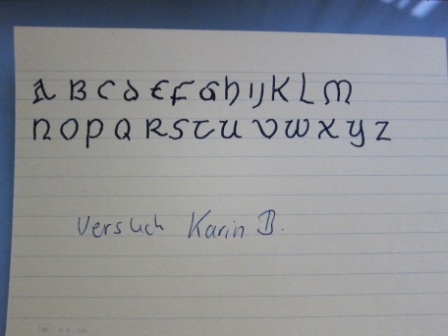 A B C D E F G H I J K L M
N O P Q R S T U V W X Y Z
Versuch Karin B.